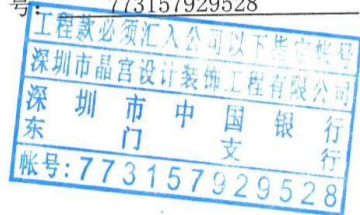 号: 773157929528
工程款必须汇入公司以下指定帐号
深圳市晶宫设计装饰工程有限公司
深圳市中国银行
东门支行
帐号:773157929528